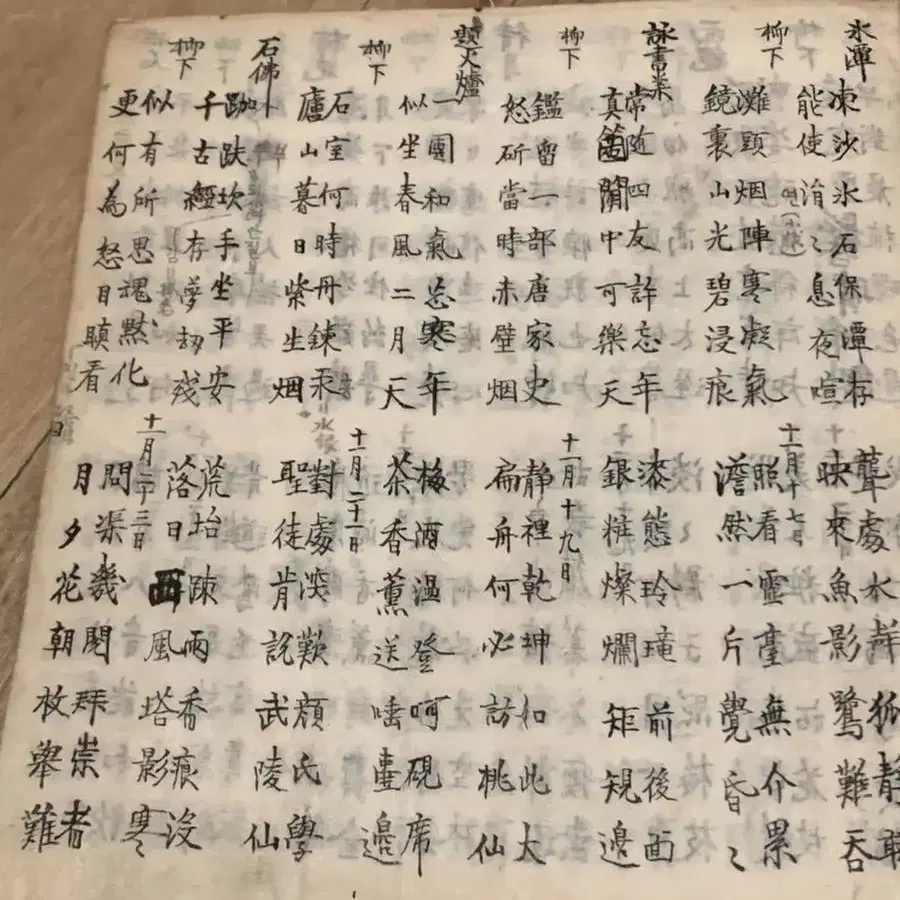 氷潭
凍沙氷石保潭存 聾處水鮮狐靜
能使涓々息夜喧 映來魚影鷺難呑
柳下 十一月十七日
灘頭烟陣寒凝氣 照看靈臺無介累
鏡裏山光碧浸痕 澹然一片覺昏々
詠書案
常隨四友許忘年 漆態玲瓏前後面
真箇閒中可樂天 銀粧燦爛矩規邊
柳下 十一月十九日
鑑留一部唐家史 靜裡乾坤如此大
怒斫當時赤壁烟 扁舟何必訪桃仙
題火爐
一團和氣忘寒年 梅酒温登呵硯席
似坐春風二月天 茶香薰送唾壺邊
柳下 十一月二十一日
石室何時丹鍊汞 對處淡歎顔氏學
廬山暮日紫生烟 聖徒肯説武陵仙
石佛
跏趺坎手坐平安 荒坮踈雨香痕沒
千古經存夢劫殘 落日西風塔影寒
柳下 十一月二十三日
似有所思魂黙化 問渠幾閱拜崇者
更何為怒目瞋看 月夕花朝枚擧難